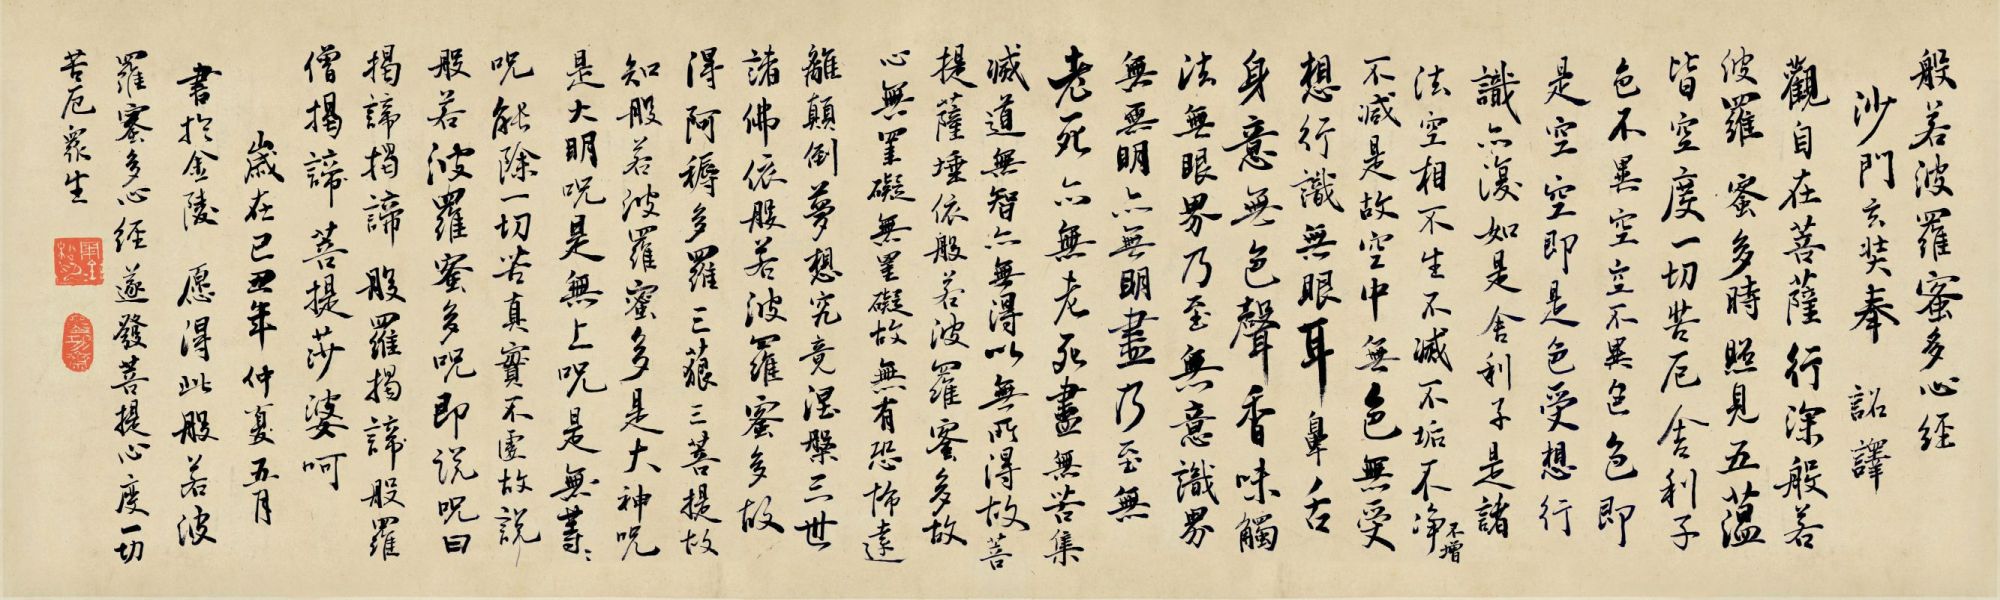 般若波羅蜜多心経
沙門玄奘奉 詔譯
觀自在菩薩行深般若
波羅蜜多時照見五蘊
皆空度一切苦厄舍利子
色不異空空不異色色即
是空空即是色受想行
識亦復如是舍利子是諸
法空相不生不滅不垢不淨不增
不減是故空中無色無受
想行識無眼耳鼻舌
身意無色聲香味觸
法無眼界乃至無意識界
無無明亦無明盡乃至無
老死亦無老死盡無苦集
滅道無智亦無得以無所得故菩
提薩埵依般若波羅蜜多故
心無罣礙無罣礙故無有恐怖遠
離顛倒夢想究竟涅槃三世
諸佛依般若波羅蜜多故
得阿耨多羅三藐三菩提故
知般若波羅蜜多是大神呪
是大明呪是無上呪是無等〻
呪能除一切苦真實不虛故說
般若波羅蜜多呪即说呪曰
揭諦揭諦 般羅揭諦般羅
僧揭諦菩提莎婆呵
歲在己丑年仲夏五月
書於金陵 愿得此般若波
羅蜜多心経遂發菩提心度一切
苦厄眾生